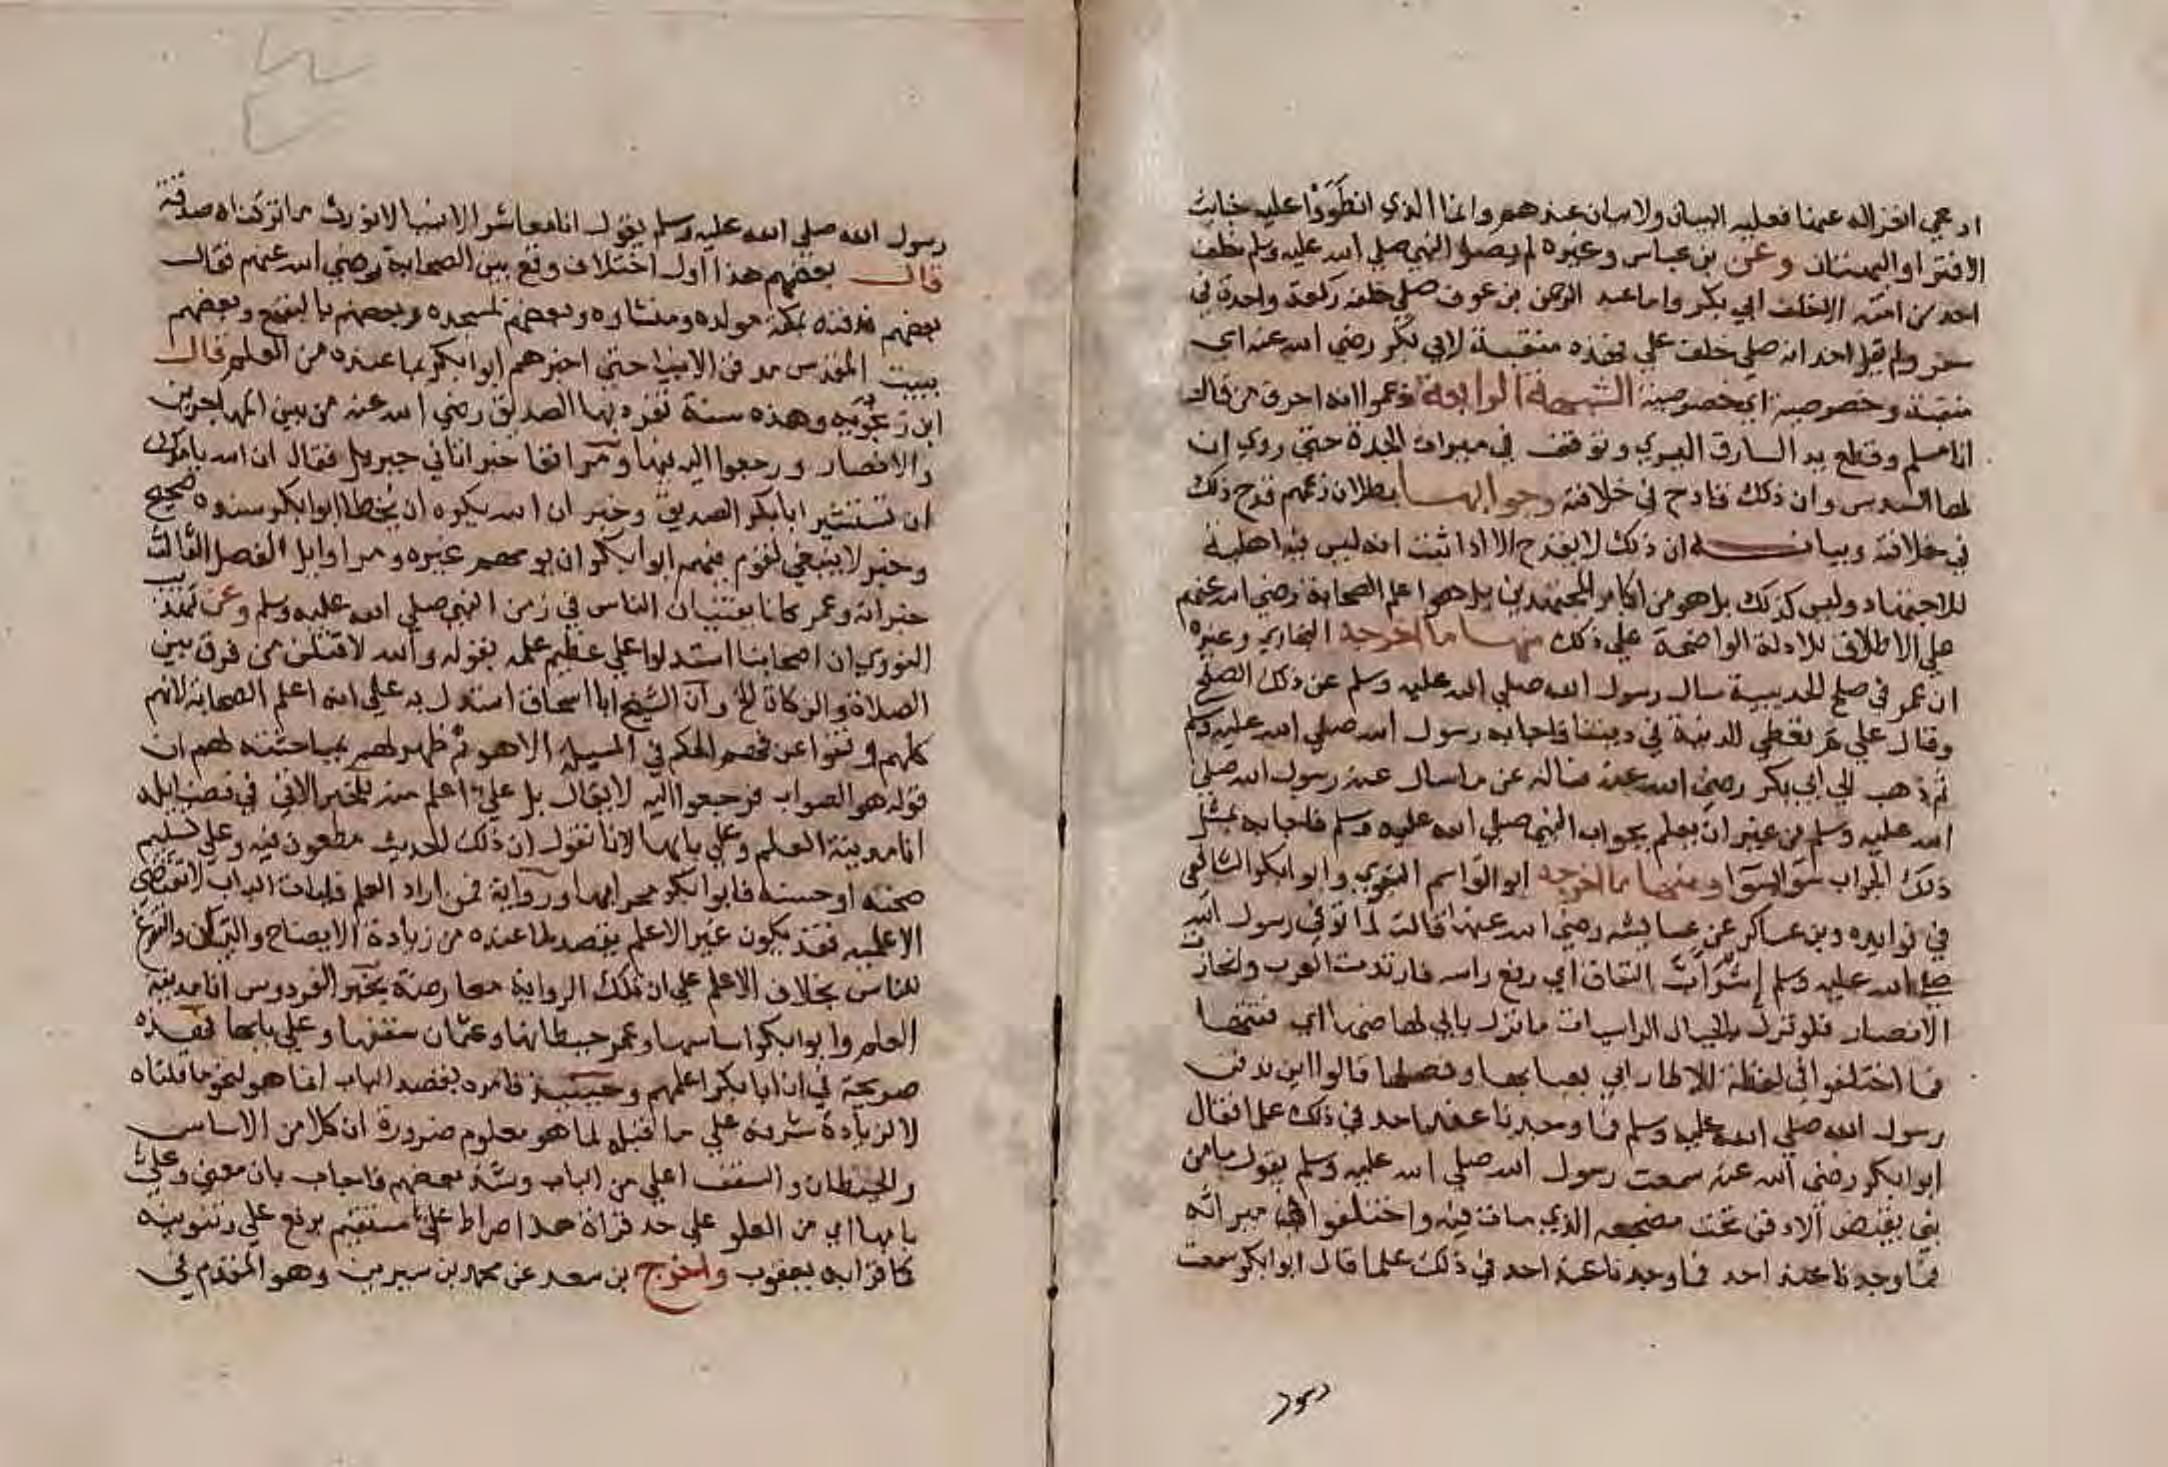 ادعي انعزاله عنها فعليه البيان ولا بيان عندهم وانما الذي انطووا عليه خبايث
الافترا والبهتان وعن بن عباس وغيره لم يصل النبي صلي الله عليه وسلم خلف
احد من امته الا خلف ابي بكر واما عبد الرحمن بن عوف صلي خلفه ركعة واحدة في
سفر ولم يقل احد انه صلي خلف علي فهذه منقبة لابي بكر رضي الله عنه اي
منقبة وخصوصية اي خصوصية الشبهة الرابعة زعموا انه احرق من قال
انا مسلم وقطع يد السارق اليسري وتوقف في ميراث الجدة حتي روي ان
لها السدس وان ذلك قادح في خلافته وجوابها بطلان زعمهم قدح ذلك
في خلافته وبيانه ان ذلك لا يقدح الا اذا ثبت انه ليس فيه اهلية
للاجتهاد وليس كذلك بل هو من اكابر المجتهدين بل هو اعلم الصحابة رضي الله عنهم
علي الاطلاق للادلة الواضحة علي ذلك منها ما اخرجه البخاري وغيره
ان عمر في صلح الحديبية سال رسول الله صلي الله عليه وسلم عن ذلك الصلح
وقال علي م نعطي الدنية في ديننا فاجابه رسول الله صلي الله عليه وسلم
ثم ذهب الي ابي بكر رضي الله عنه فساله عن ما سال عنه رسول الله صلي
الله عليه وسلم من غير ان يعلم بجواب النبي صلي الله عليه وسلم فاجابه بمثل
ذلك الجواب سوا بسوا ومنها ما اخرجه ابو القاسم البغوي وابو ابكر الشافعي
في فوايده وبن عساكر عن عايشه رضي الله عنها قالت لما توفي رسول الله
صلي الله عليه وسلم اشرأب النفاق اي رفع راسه فارتدت العرب وانحازت
الانصار فلو نزل بالجبال الراسيات ما نزل بابي لهاضها اي فتتها
فما اختلفوا في لفظة الا طار ابي بعبايها وفصلها قالوا اين ندفن
رسول الله صلي الله عليه وسلم فما وجدنا عند احد في ذلك علما فقال
ابو ابكر رضي الله عنه سمعت رسول الله صلي الله عليه وسلم يقول ما من
نبي يقبض الا دفن تحت مضجعه الذي مات فيه واختلفوا في ميراثه
فما وجدنا عند احد فما وجدنا عند احد في ذلك علما قال ابو ابكر سمعت
رسول
رسول الله صلي الله عليه وسلم يقول انا معاشر الانبيا لا نورث ما تركناه صدقة
قال بعضهم هذا اول اختلاف وقع بين الصحابة رضي الله عنهم فقال
بعضهم ندفنه بمكة مولده ومنشاره وبعضهم بمسجده وبعضهم بالبقيع وبعضهم
ببيت المقدس مدفن الانبيا حتي اخبرهم ابو ابكر بما عنده من العلم قال
ابن زنجويه وهذه سنة تفرد بها الصديق رضي الله عنه من بين المهاجرين
والانصار ورجعوا اليه فيها ومر انفا خبر اتاني جبريل فقال ان الله يامرك
ان تستشير ابابكر الصديق وخبر ان الله يكره ان يخطا ابو ابكر سنده صحيح
وخبر لا ينبغي لقوم فيهم ابو ابكر ان يومهم غيره ومر اوايل الفصل الثالث
خبر انه وعمر كانا يفتيان الناس في زمن النبي صلي الله عليه وسلم وعن تهذيب
النووي ان اصحابنا استدلوا علي عظيم علمه بقوله والله لاقتلن من فرق بين
الصلاة والزكاة الخ وان الشيخ ابا اسحاق استدل به علي انه اعلم الصحابة لانهم
كلهم وقفوا عن فهم الحكم في المسيلة الا هو ثم ظهر لهم بمباحثته لهم ان
قوله هو الصواب فرجعوا اليه لا يقال بل علي اعلم منه للخبر الاتي في فضايله
انا مدينة العلم وعلي بابها لانا نقول ان ذلك الحديث مطعون فيه وعلي تسليم
صحته او حسنه فابو ابكر محرابها ورواية فمن اراد العلم فليات الباب لا تقتضي
الاعلمية فقد يكون غير الاعلم يقصد لما عنده من زيادة الايضاح والبيان والتفرغ
للناس بخلاف الاعلم علي ان تلك الرواية معارضة بخبر الفردوس انا مدينة
العلم وابو ابكر اساسها وعمر حيطانها وعثمان سقفها وعلي بابها فهذه
صريحة في ان ابا بكر اعلمهم وحينيذ فامره بقصد الباب انما هو لنحو ما قلناه
لا لزيادة شرفه علي ما قبله لما هو معلوم ضرورة ان كلا من الاساس
والحيطان والسقف اعلي من الباب وشذ بعضهم فاجاب بان معني وعلي
بابها اي من العلو علي حد قراة هذا صراط علي مستقيم برفع علي وتنوينه
كما قرا به يعقوب واخرج بن سعد عن محمد بن سيرين وهو المقدم في